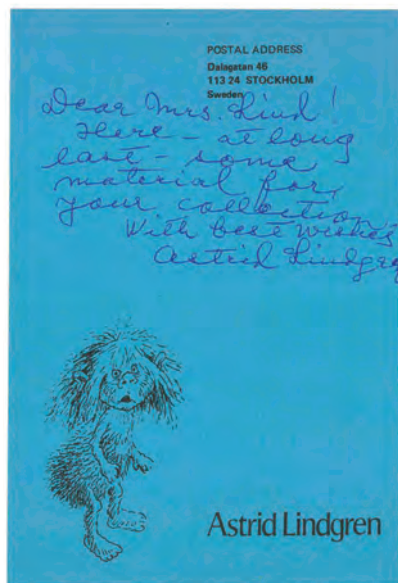 POSTAL ADDRESS
Dalagatan 46
113 24 STOCKHOLM
Sweden
Dear Mrs. Lind!
Here – at long
last – some
material for
your collection.
With best wishes
Astrid Lindgren
Astrid Lindgren